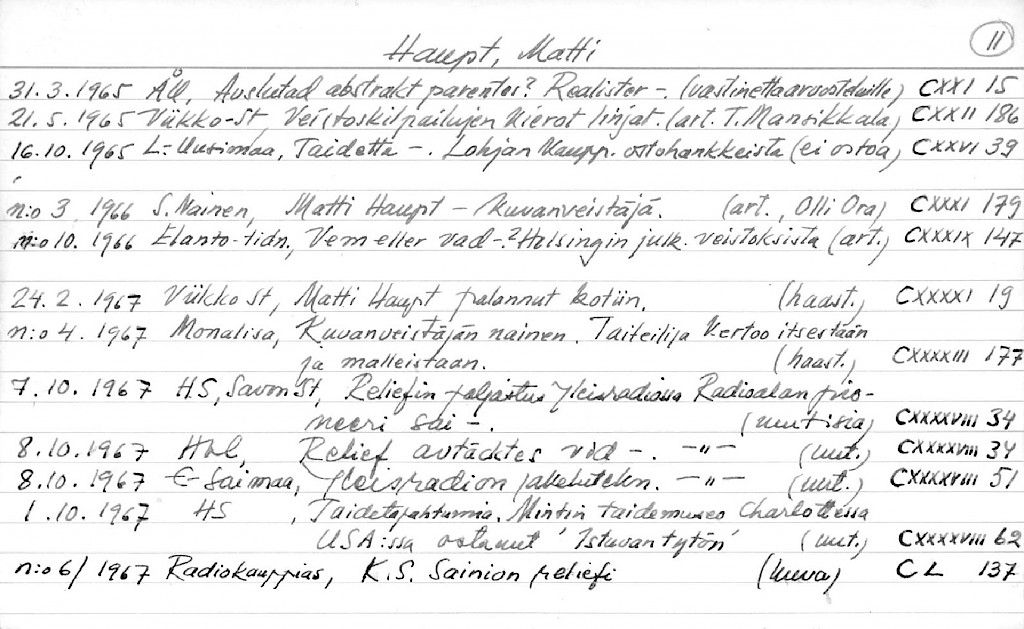 11
Haupt, Matti
31.3.1965 ÅU, Avslutad abstrakt parentes? Realister -. (vastinettaarvosteluille) CXXI 15
21.5.1965 Viikko-St, Veistoskilpailujen kierot linjat. (art. T. Mansikkala) CXXII 186
16.10.1965 L-Uusimaa, Taidetta -. Lohjan kaupp. ostohankkeista (ei ostoa) CXXVI 39
n:o 3 1966 S. Nainen, Matti Haupt - kuvanveistäjä. (art., Olli Ora) CXXXI 179
n:o 10. 1966 Elanto-tidn, Vem eller vad -? Helsingin julk. veistoksista (art.) CXXXIX 147
24.2.1967 Viikko St, Matti Haupt palannut kotiin. (haast.) CXXXXI 19
n:o 4. 1967 Monalisa, Kuvanveistäjän nainen. Taiteilija kertoo itsestään
ja malleistaan. (haast.) CXXXXIII 177
7.10.1967 HS, Savon St, Reliefin paljastus Yleisradiossa Radioalan pio-
neeri sai -. (uutisia) CXXXXVIII 34
8.10.1967 Hbl, Relief avtäcktes vid -. -"- (uut.) CXXXXVIII 34
8.10.1967 E-Saimaa, Yleisradion -"- (uut.) CXXXXVIII 51
1.10.1967 HS, Taidetapahtumia. Mintin taidemuseo Charlottessa
USA:ssa ostanut 'Istuvan tytön' (uut.) CXXXXVIII 62
n:o 6/1967 Radiokauppias, K.S. Sainion reliefi (kuva) CL 137